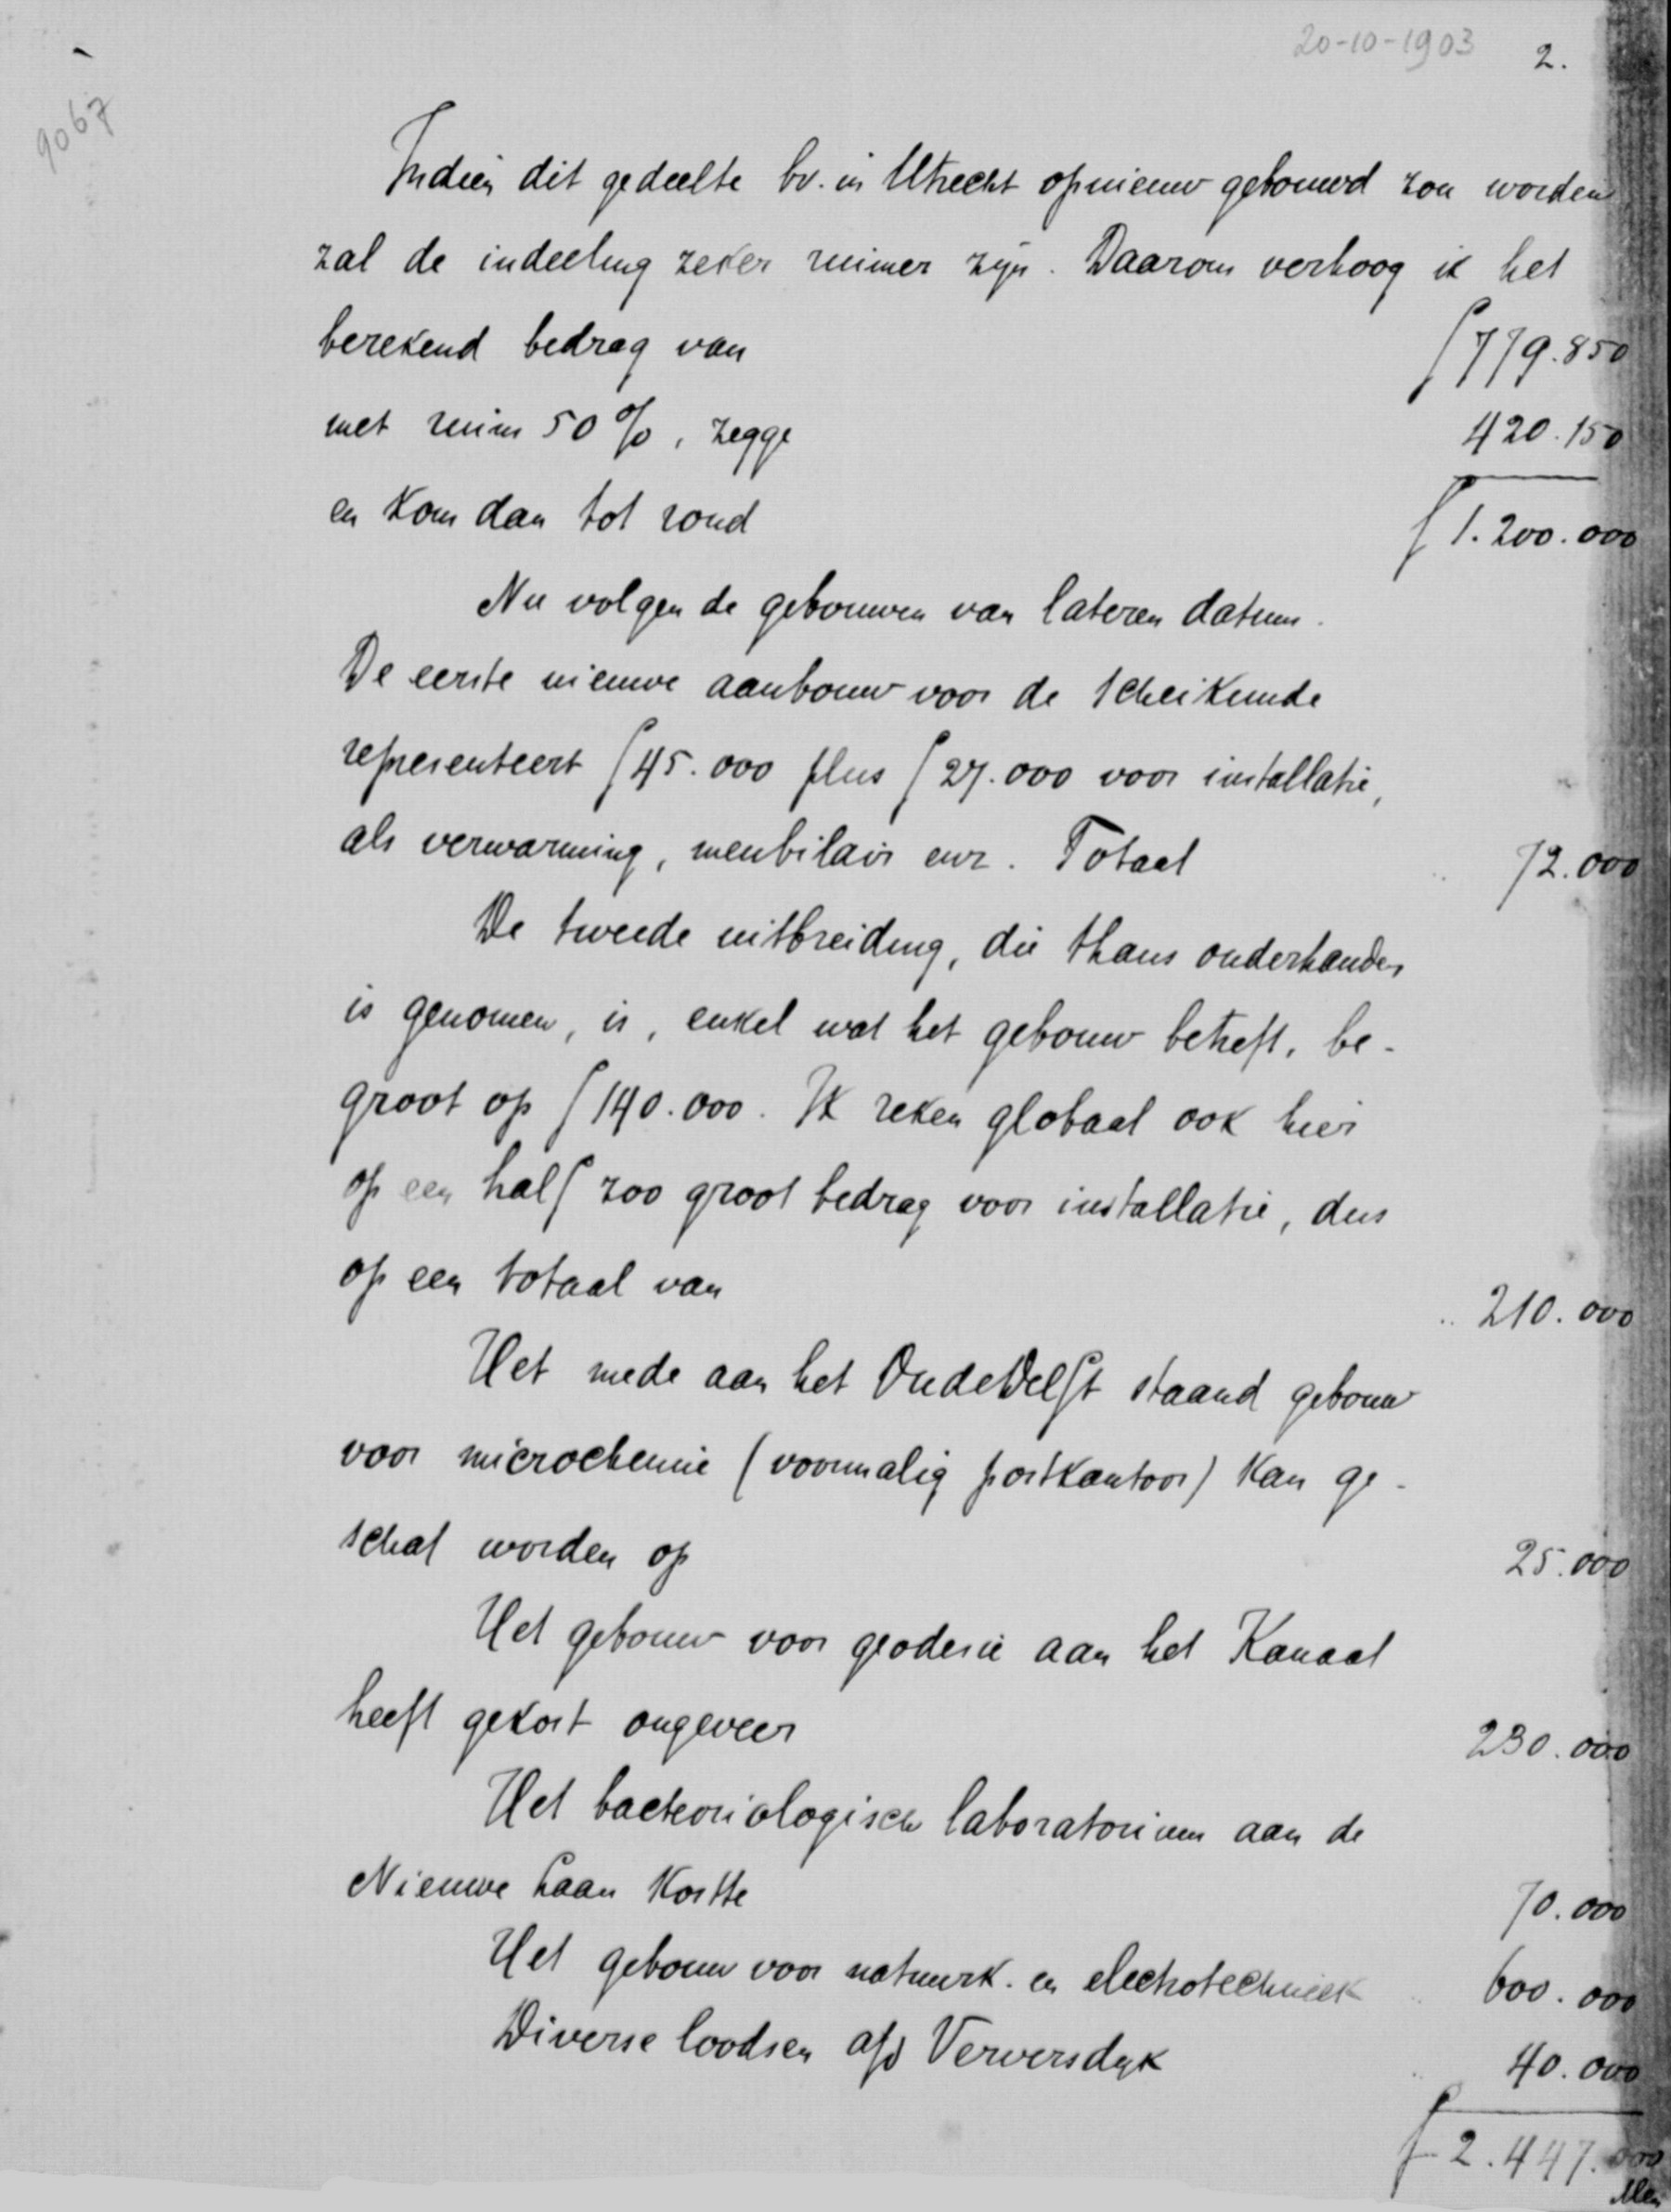 20-10-1903 2.
9067
Indien dit gedeelte bv. in Utrecht opnieuw gebouwd zou worden
zal de indeeling zeker ruimer zijn. Daarom verhoog ik het
berekend bedrag van f 779.850
met ruim 50 %, zegge 420.150
en kom dan tot rond f 1.200.000
Nu volgen de gebouwen van lateren datum.
De eerste nieuwe aanbouw voor de scheikunde
representeert f 45.000 plus f 27.000 voor installatie,
als verwarming, meubilair enz. Totaal „ 72.000
De tweede uitbreiding, die thans onderhanden
is genomen, is, enkel wat het gebouw betreft, be-
groot op f 140.000. Ik reken globaal ook hier
op een half zoo groot bedrag voor installatie, dus
op een totaal van „ 210.000
Het mede aan het OudeDelft staand gebouw
voor microchemie (voormalig postkantoor) kan ge-
schat worden op 25.000
Het gebouw voor geodesie aan het Kanaal
heeft gekost ongeveer 230.000
Het bacteoriologisch laboratorium aan de
Nieuwe Laan kostte 70.000
Het gebouw voor natuurk. en electrotechniek „ 600.000
Diverse loodsen a/d Verwersdijk „ 40.000
f 2.447.000